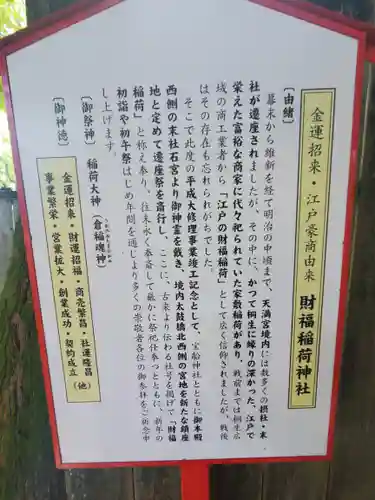 金運招来・江戸豪商由来 財福稲荷神社
〔由緒〕
幕末から維新を経て明治の中頃まで、天満宮境内には数多くの摂社・末
社が遷座されましたが、その中に、かつて桐生に縁りの深かった、江戸で
栄えた富裕な商家に代々祀られていた家敷稲荷があり、戦前までは桐生広
域の商工業者から「江戸の財福稲荷」として広く信仰されましたが、戦後
はその存在も忘れられがちでした。
そこで此度の平成大修理事業竣工記念として、宝船神社とともに御本殿
西側の末社石宮より御神霊を戴き、境内太鼓橋北西側の宮地を新たな鎮座
地と定めて遷座祭を斎行し、ここに、古来より伝わる社号を掲げて「財福
稲荷」と称え奉り、往来永く奉斎して厳かに祭祀仕奉つとともに、新年の
初詣や初午祭はじめ年間を通じより多くの崇敬者各位の御参拝をご祈念申
し上げます。
〔御祭神〕 稲荷大神（倉稲魂神）
うかのみたまのかみ
〔御神徳〕 金運招来・財運招福・商売繁昌・社運隆昌
事業繁栄・営業拡大・創業成功・契約成立（他）